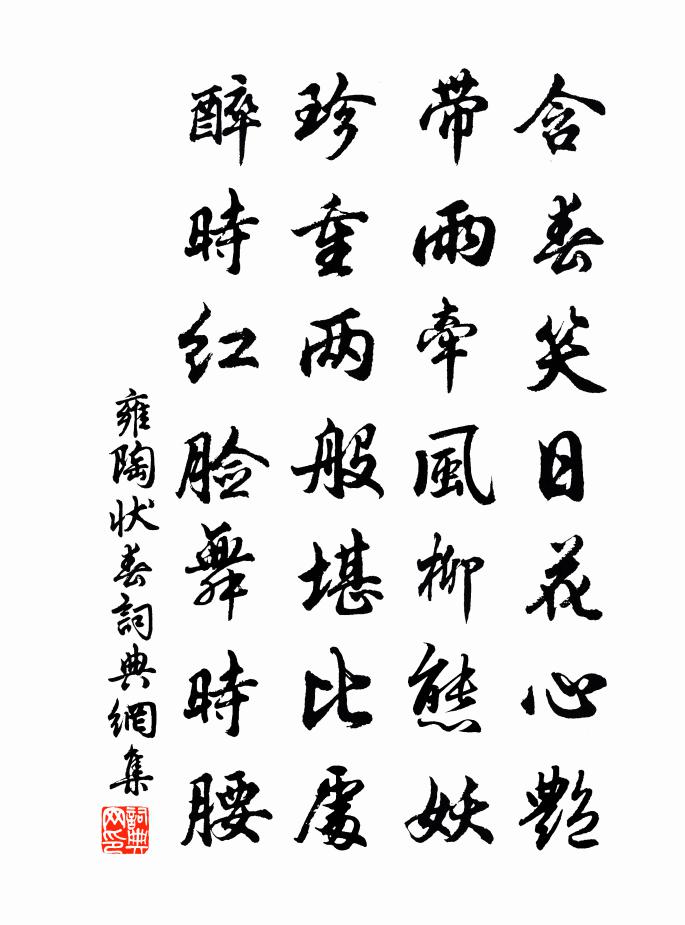 含春笑日花心艷
帶雨牽風柳態妖
珍重两般堪比處
醉時紅臉舞時腰
雍陶状春詞典網集
詞典網印